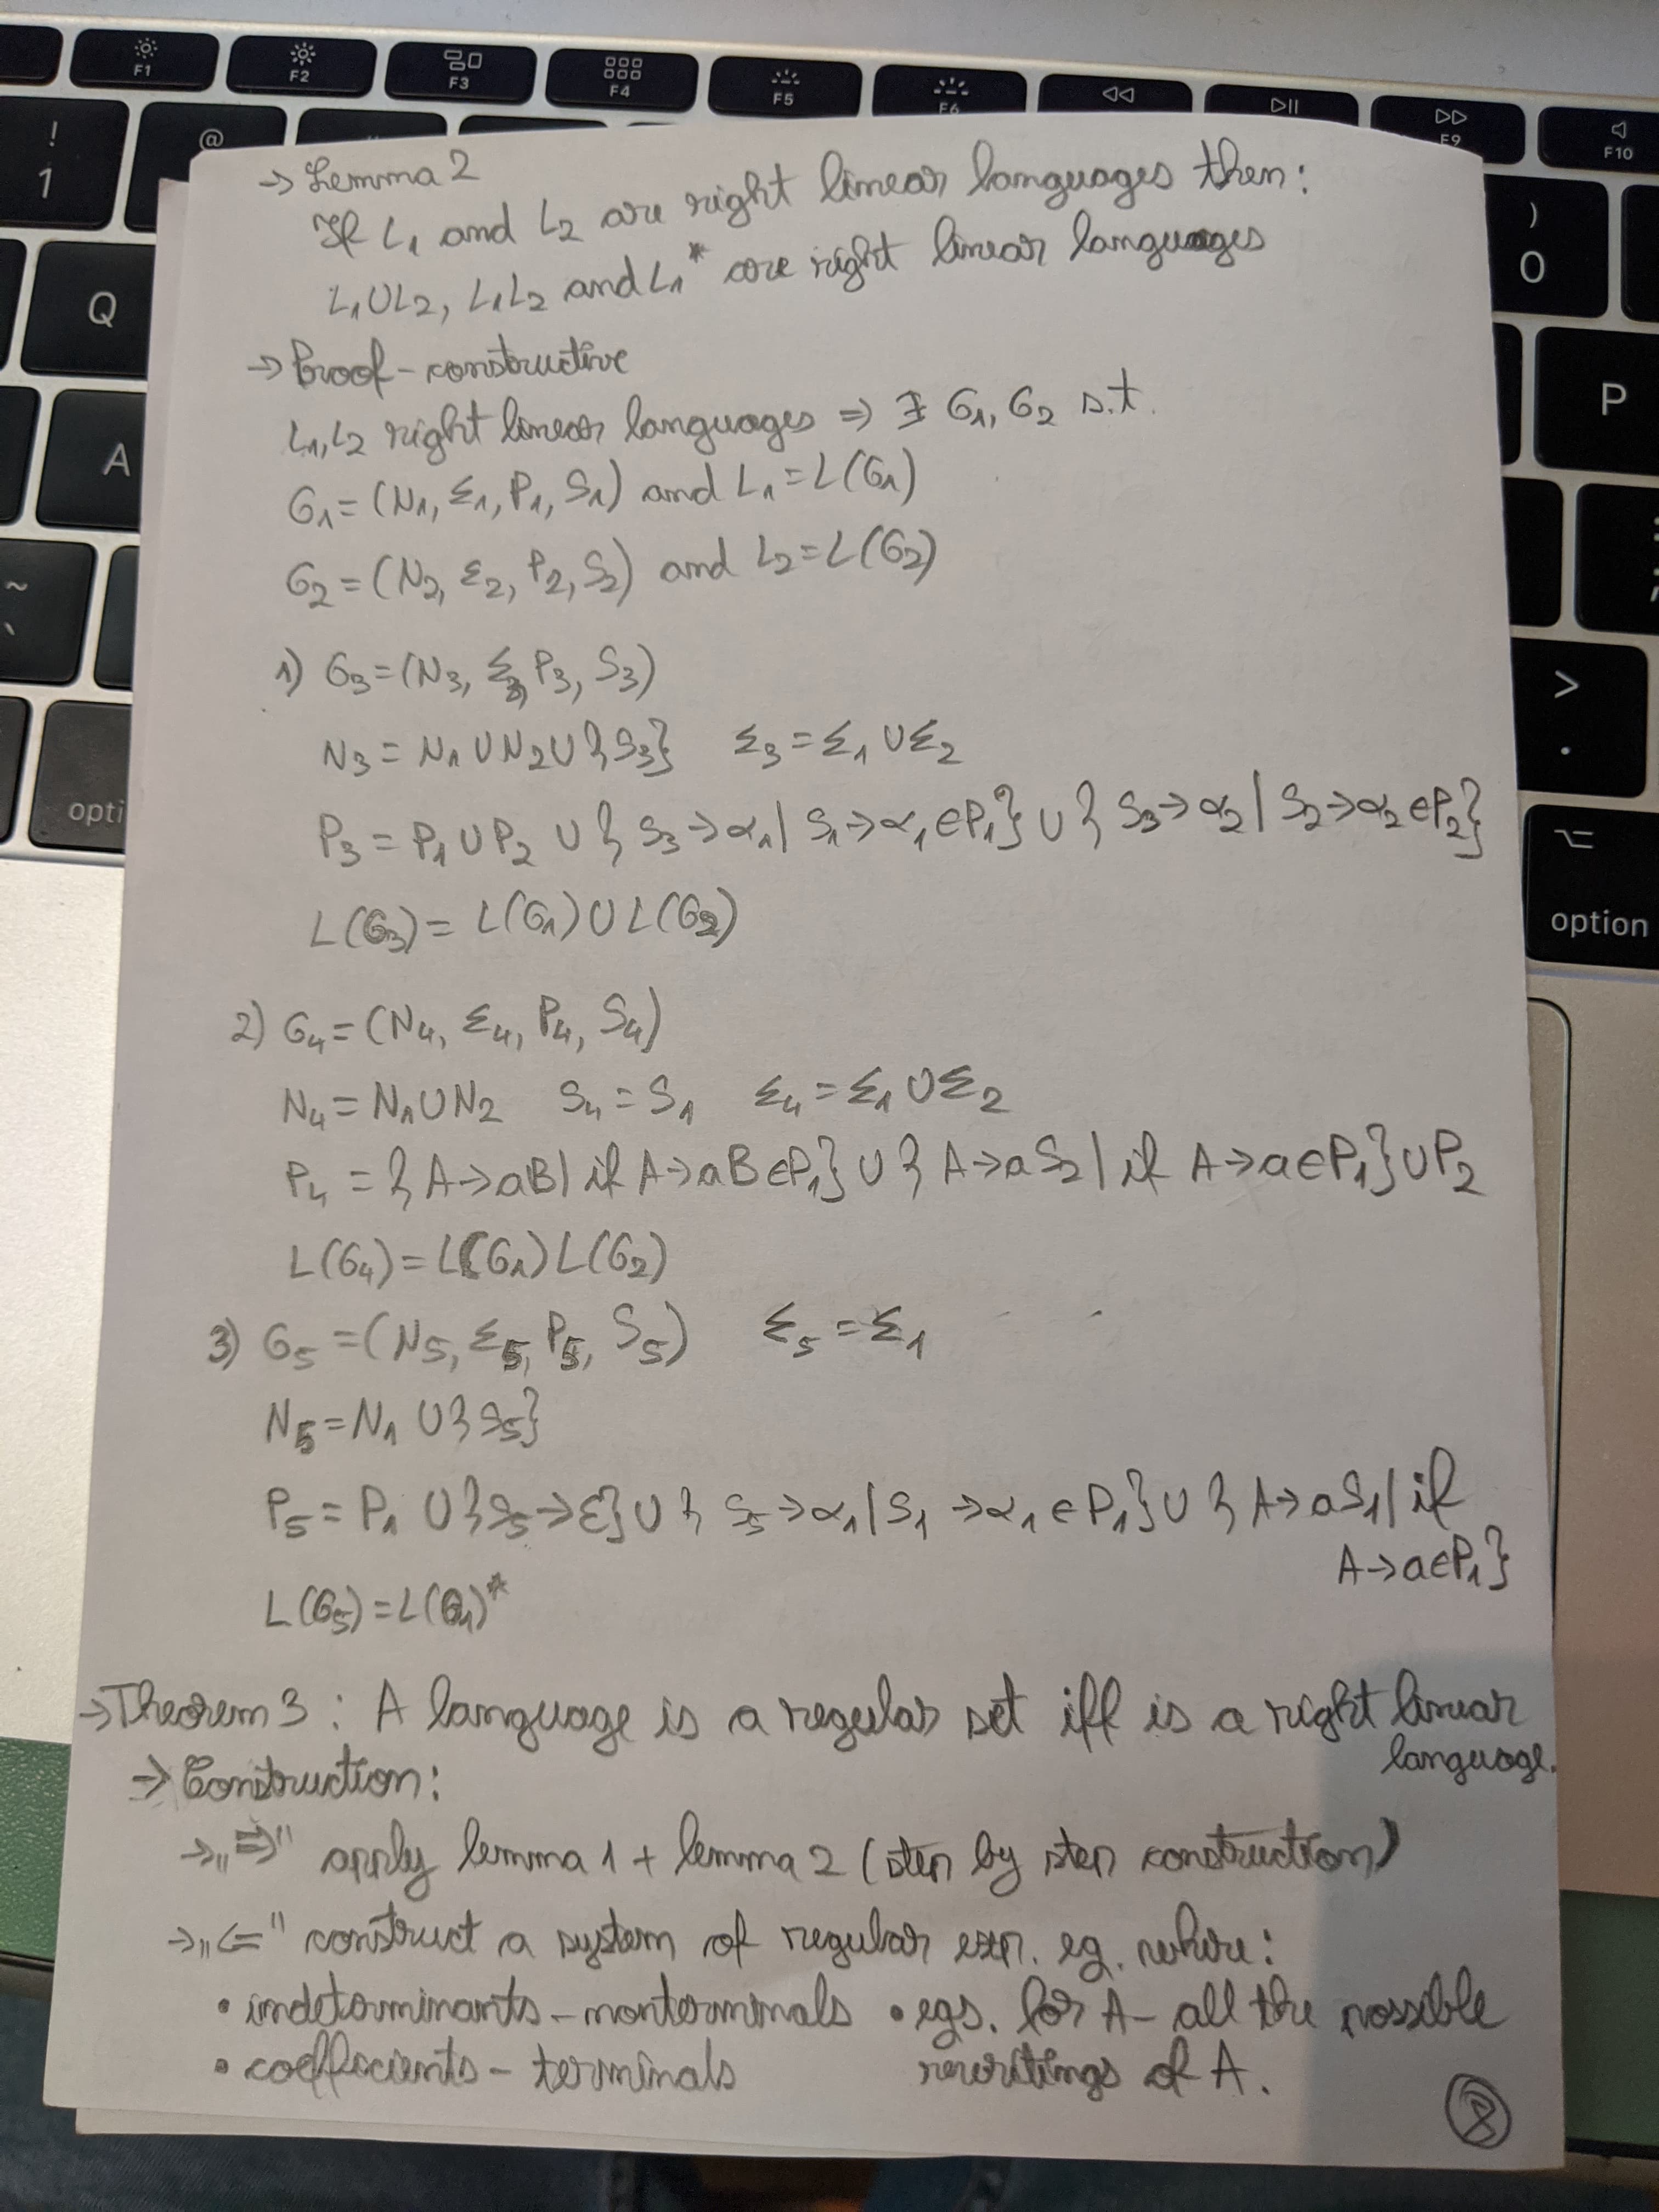 F1 F2 F3 F4 F5 F6 F9 F10
! 1 @ ) 0
Q P
A
~ >
.
opti
option
→ Lemma 2
If L₁ and L₂ are right linear languages then:
L₁∪L₂, L₁L₂ and L₁* are right linear languages
→ Proof - constructive
L₁, L₂ right linear languages ⇒ ∃ G₁, G₂ s.t.
G₁ = (N₁, Σ₁, P₁, S₁) and L₁ = L(G₁)
G₂ = (N₂, Σ₂, P₂, S₂) and L₂ = L(G₂)
1) G₃ = (N₃, Σ₃, P₃, S₃)
N₃ = N₁ ∪ N₂ ∪ {S₃} Σ₃ = Σ₁ ∪ Σ₂
P₃ = P₁ ∪ P₂ ∪ { S₃ → α₁ | S₁ → α₁ ∈ P₁} ∪ { S₃ → α₂ | S₂ → α₂ ∈ P₂}
L(G₃) = L(G₁) ∪ L(G₂)
2) G₄ = (N₄, Σ₄, P₄, S₄)
N₄ = N₁ ∪ N₂ S₄ = S₁ Σ₄ = Σ₁ ∪ Σ₂
P₄ = { A → aB | if A → aB ∈ P₁} ∪ { A → aS₂ | if A → a ∈ P₁} ∪ P₂
L(G₄) = L(G₁) L(G₂)
3) G₅ = (N₅, Σ₅, P₅, S₅) Σ₅ = Σ₁
N₅ = N₁ ∪ {S₅}
P₅ = P₁ ∪ {S₅ → ε} ∪ { S₅ → α₁ | S₁ → α₁ ∈ P₁} ∪ { A → aS₁ | if
A → a ∈ P₁}
L(G₅) = L(G₁)*
→ Theorem 3 : A language is a regular set iff is a right linear
language.
→ Construction:
→ „⇒" apply lemma 1 + lemma 2 (step by step construction)
→ „⇐" construct a system of regular exp. eg. where:
• indeterminants - nonterminals • egs. for A - all the possible
• coefficients - terminals rewritings of A.
8